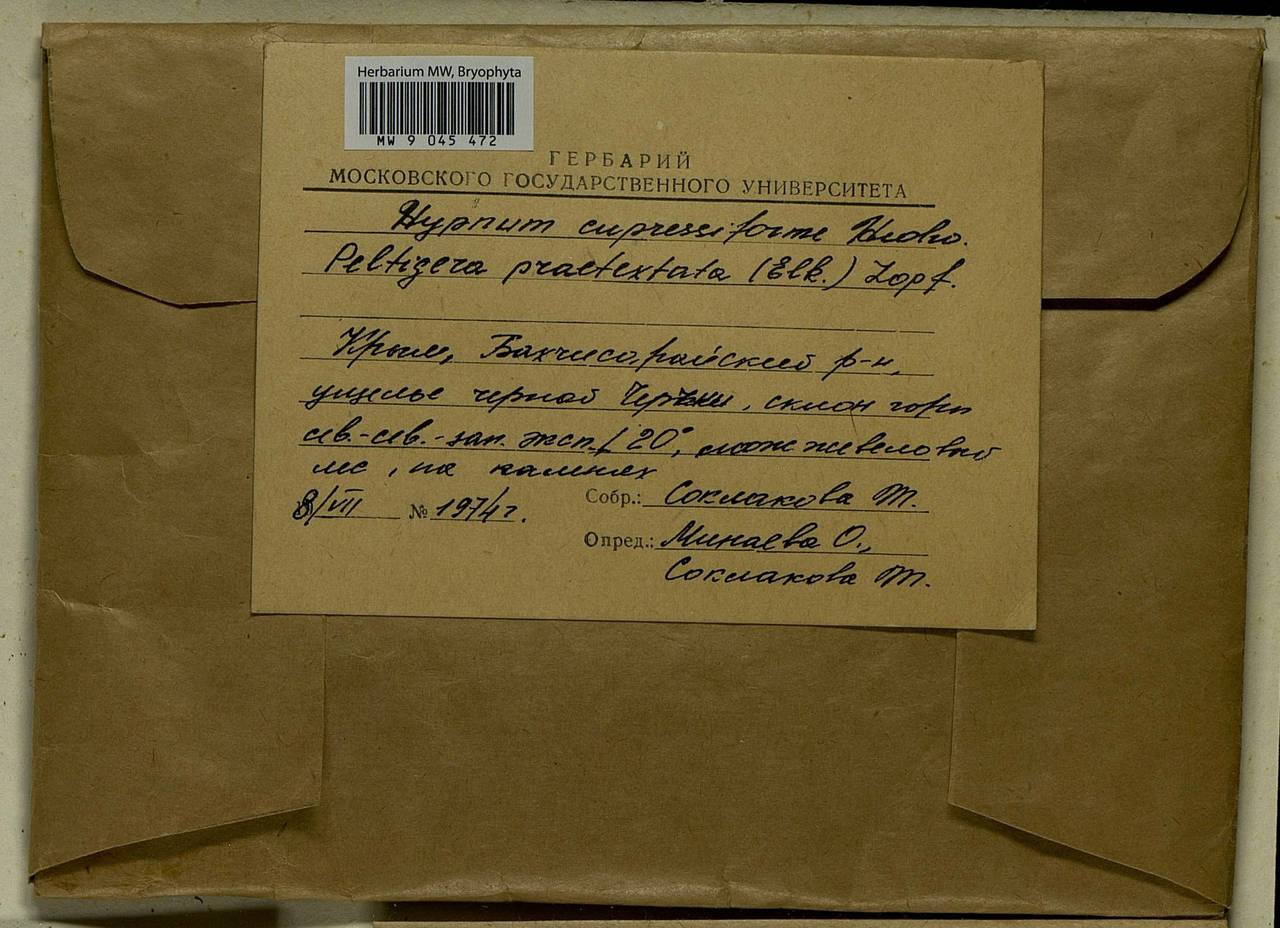 Herbarium MW, Bryophyta
MW 9 045 472
ГЕРБАРИЙ
МОСКОВСКОГО ГОСУДАРСТВЕННОГО УНИВЕРСИТЕТА
Hypnum cupressiforme Hedw.
Peltigera praetextata (Elk.) Zopf.
Крым, Бахчисарайский р-н,
ущелье черной, склон горы
сев.-сев.-зап. эксп. 20°, можжевеловый
лес, на камнях
8/VII № 1974г. Собр.: Соклакова Т.
Опред.: Минаева О.,
Соклакова Т.